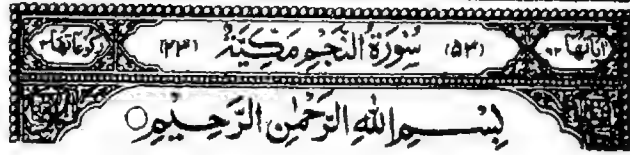 اٰیاتھا ۶۲ (۵۳) سُوْرَةُ النَّجْمِ مَكِّيَّةٌ (۲۳) رکوعاتھا ۳
بِسْمِ اللهِ الرَّحْمٰنِ الرَّحِيْمِ ○